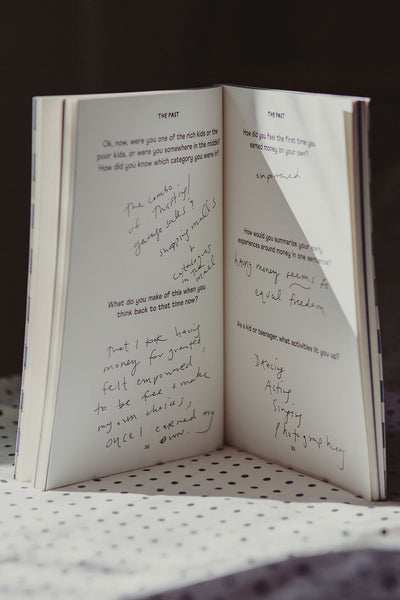 THE PAST
Ok, now, were you one of the rich kids or the
poor kids, or were you somewhere in the middle?
How did you know which category you were in?
The combo.
of Thrifting/
garage sales?
shopping malls
+
catalogues
in the
mail
What do you make of this when you
think back to that time now?
That I took having
money for granted,
felt empowered
to be free + make
my own choices,
once I earned my
own.
THE PAST
How did you feel the first time you
earned money on your own?
empowered.
How would you summarize your early
experiences around money in one sentence?
Having money seems to
equal freedom
As a kid or teenager, what activities lit you up?
Dancing
Acting
Singing
photographing